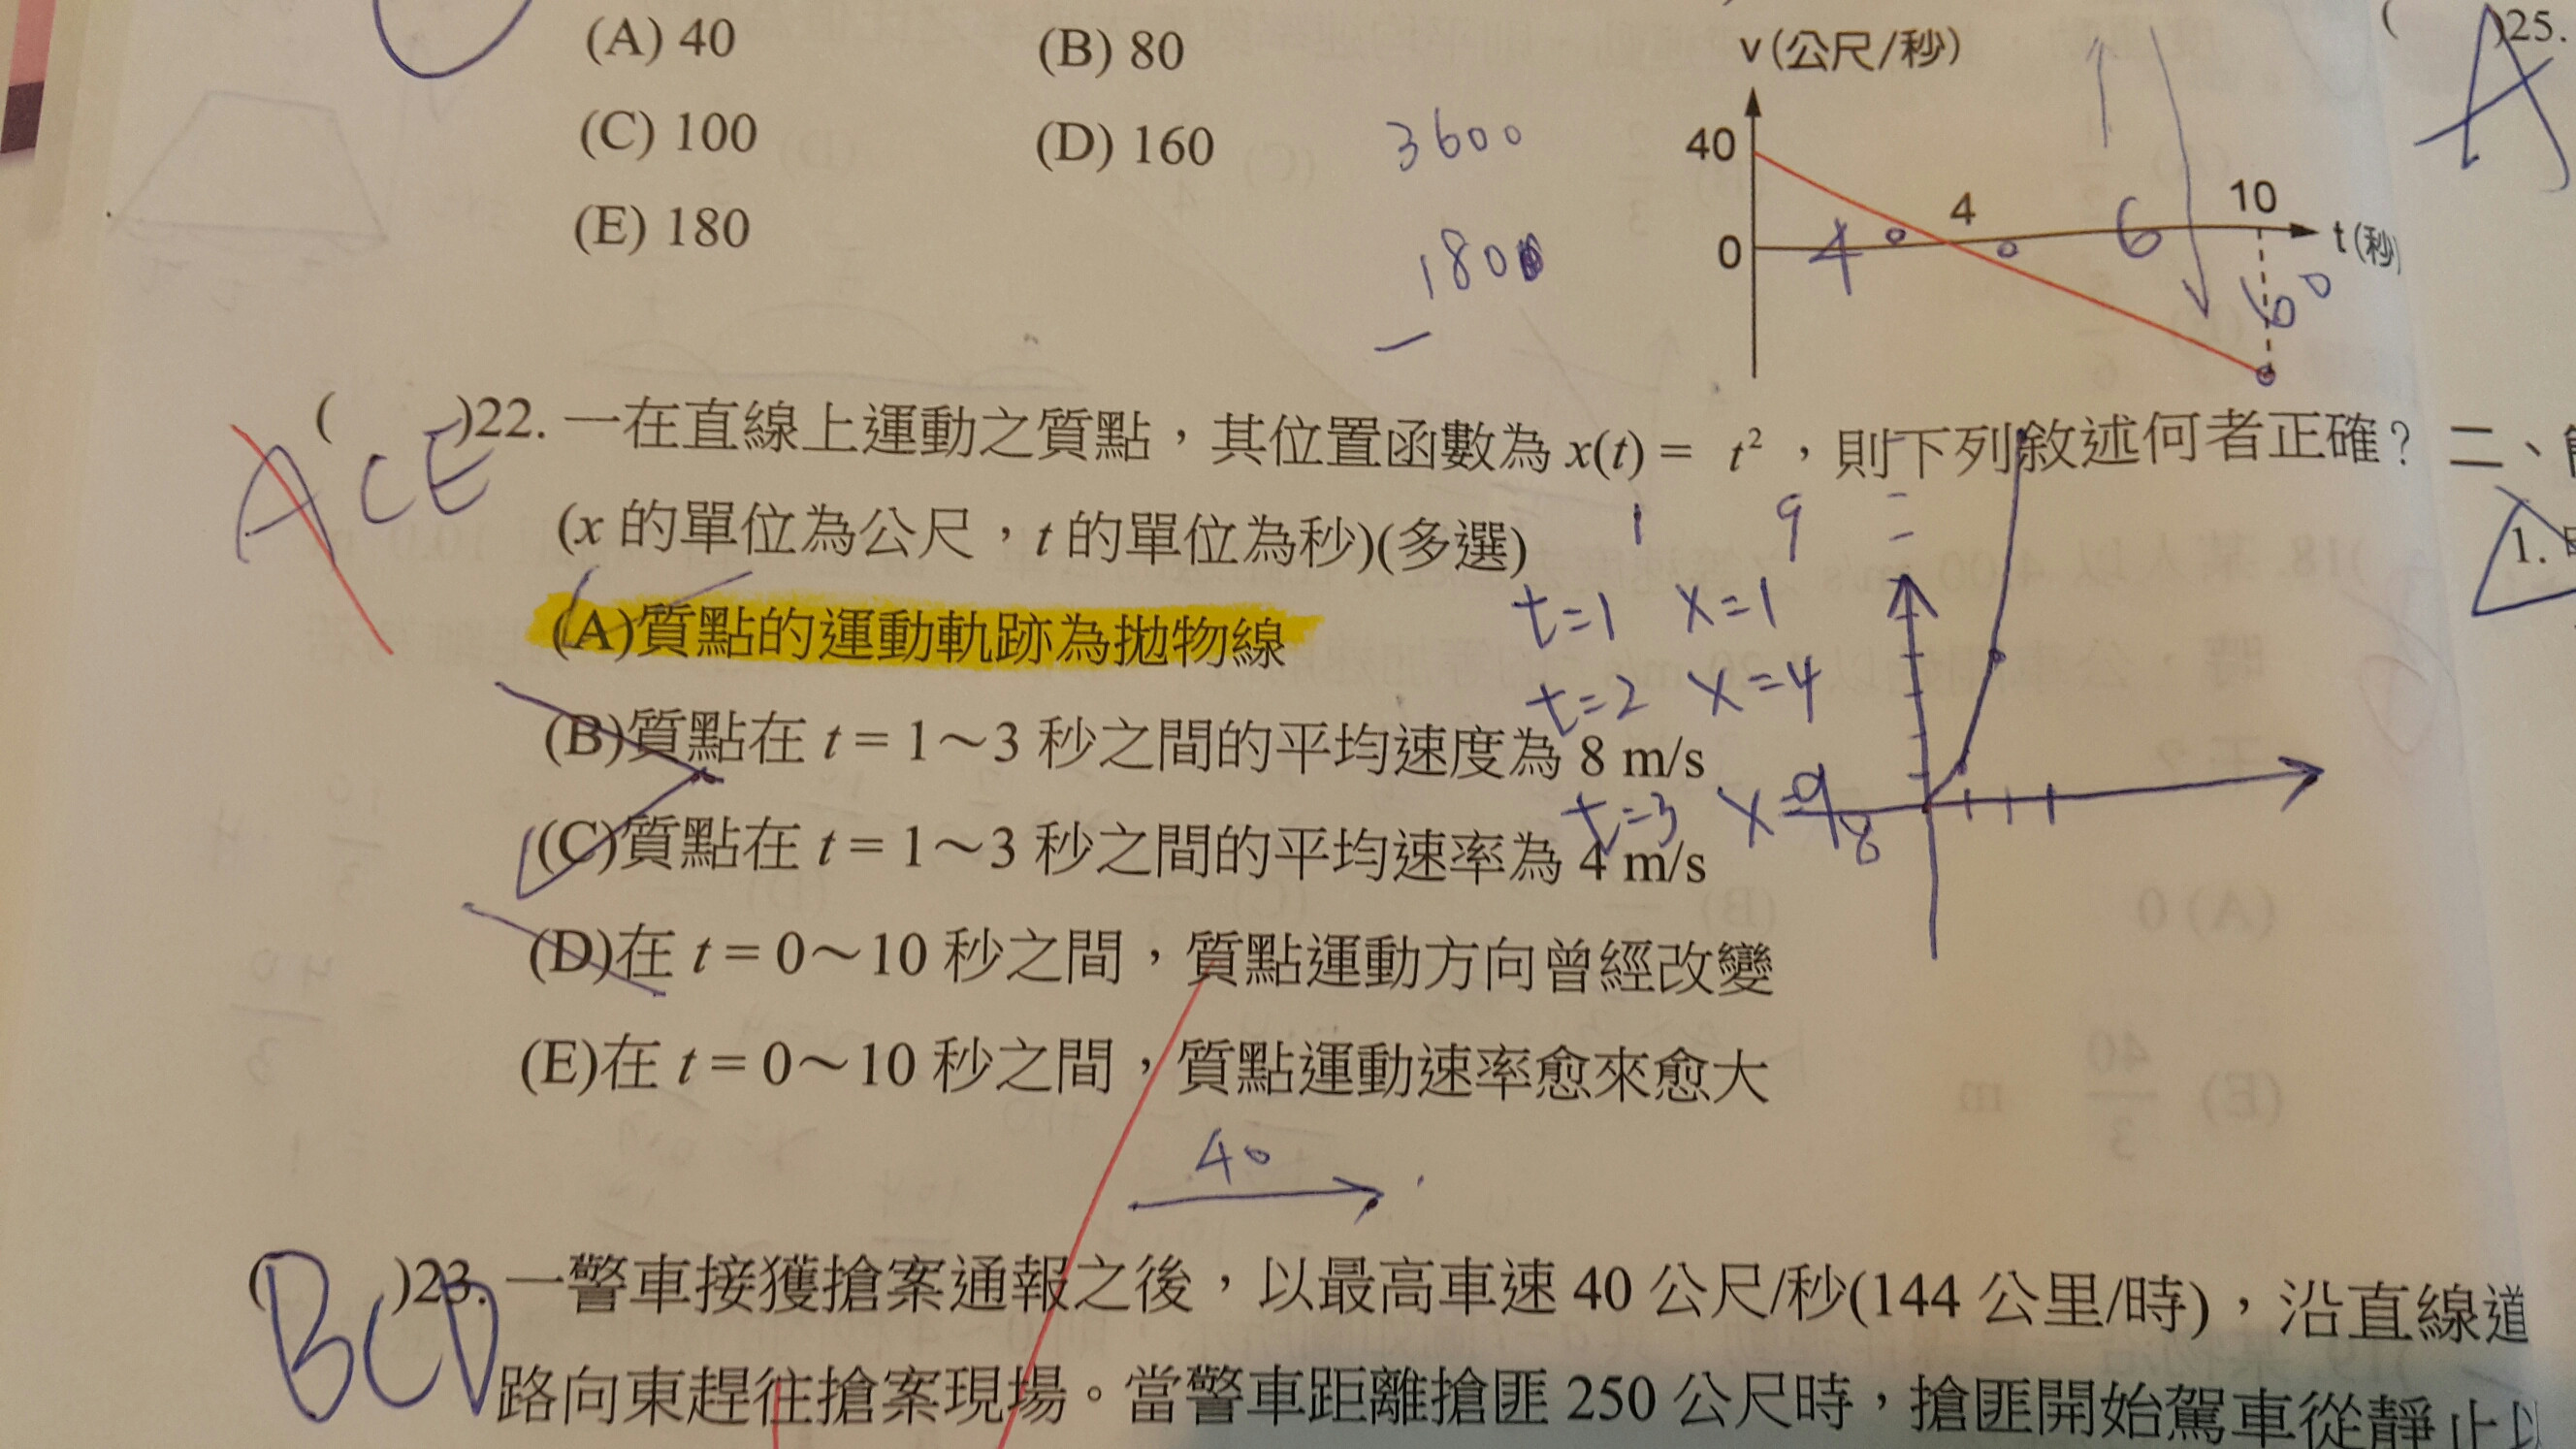 (A) 40 (B) 80
(C) 100 (D) 160
(E) 180
3600
1800
v(公尺/秒)
40
0
4
10
t(秒)
4
6
60
)25.
A
( )22. 一在直線上運動之質點，其位置函數為 x(t) = t²，則下列敘述何者正確？
ACE
(x 的單位為公尺，t 的單位為秒)(多選)
1 9
(A)質點的運動軌跡為拋物線
t=1 x=1
t=2 x=4
(B)質點在 t = 1～3 秒之間的平均速度為 8 m/s
t=3 x=9
8
(C)質點在 t = 1～3 秒之間的平均速率為 4 m/s
(D)在 t = 0～10 秒之間，質點運動方向曾經改變
(E)在 t = 0～10 秒之間，質點運動速率愈來愈大
40
( )23. 一警車接獲搶案通報之後，以最高車速 40 公尺/秒(144 公里/時)，沿直線道
BCD
路向東趕往搶案現場。當警車距離搶匪 250 公尺時，搶匪開始駕車從靜止以
二、
1.